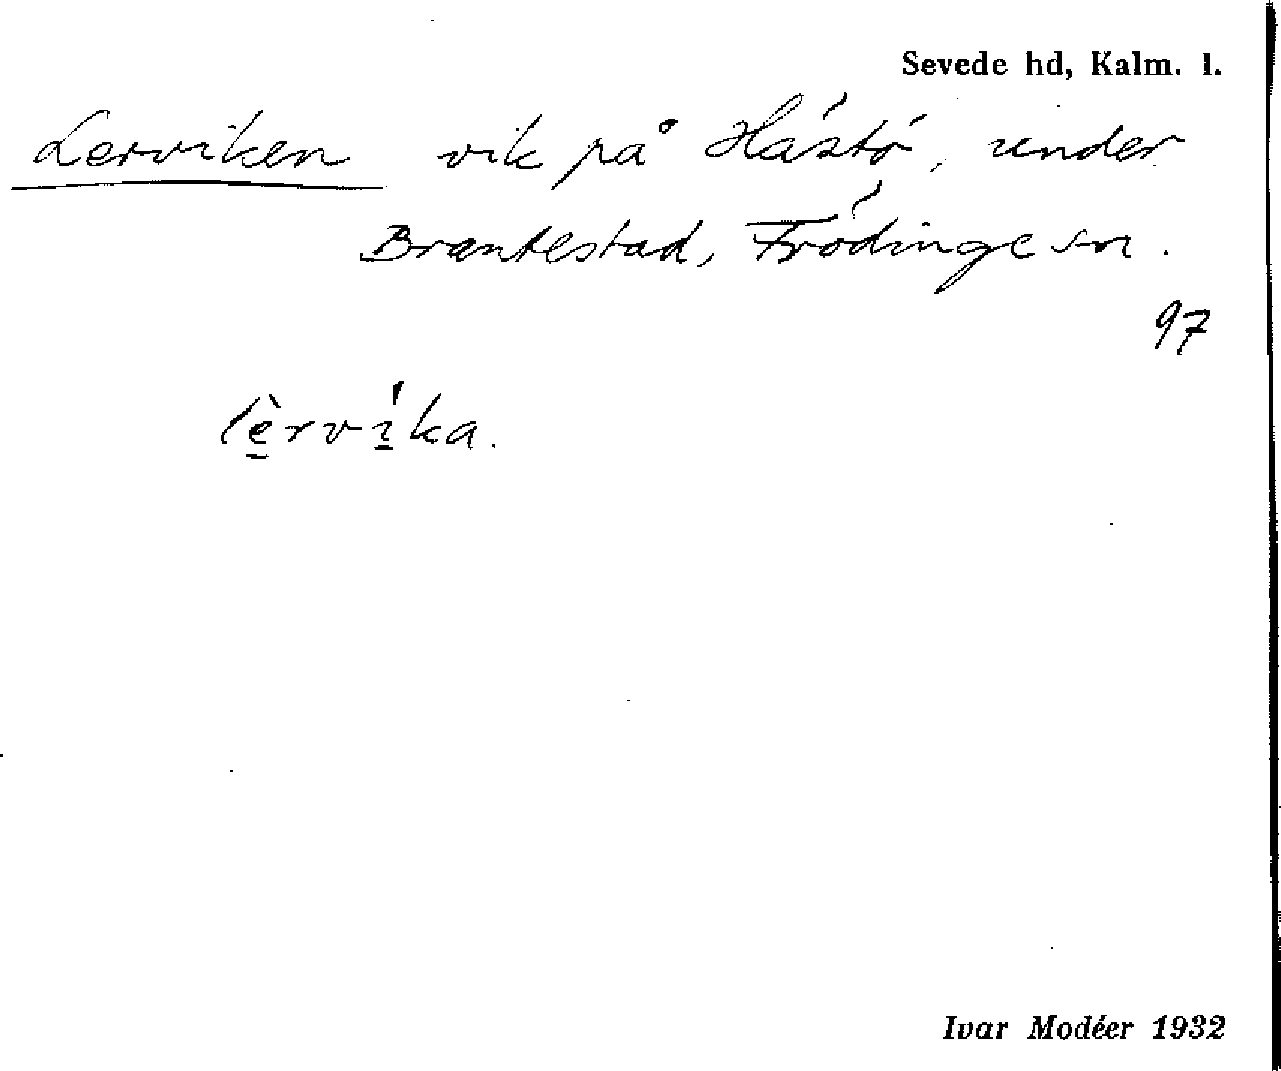 Sevede hd, Kalm. l.
Lerviken vik på Hästö, under
Brantestad, Frödinge sn.
97
lè̱rvi̱̍ka.
Ivar Modéer 1932